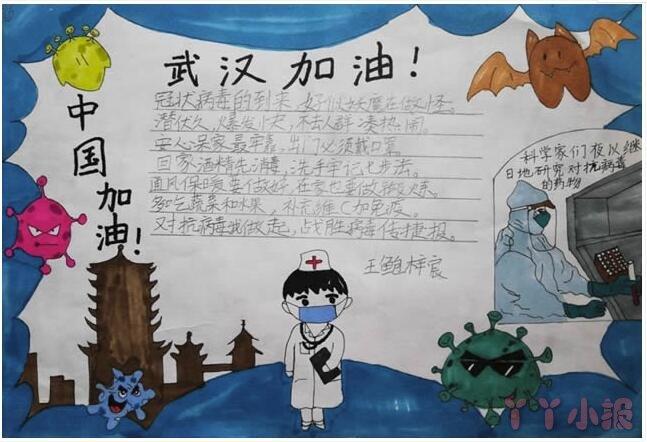 武汉加油!
中国加油!
冠状病毒的到来,好似妖魔在做怪。
潜伏久,爆发快,不去人群凑热闹。
安心呆家最牢靠,出门必须戴口罩。
回家酒精先消毒,洗手牢记七步法。
面风保暖要做好,在家也要做锻炼。
多吃蔬菜和水果,补充维C加免疫。
对抗病毒我做起,战胜病毒传捷报。
王
梓宸
科学家们夜以继
日地研究对抗病毒
的药物
丫丫小报